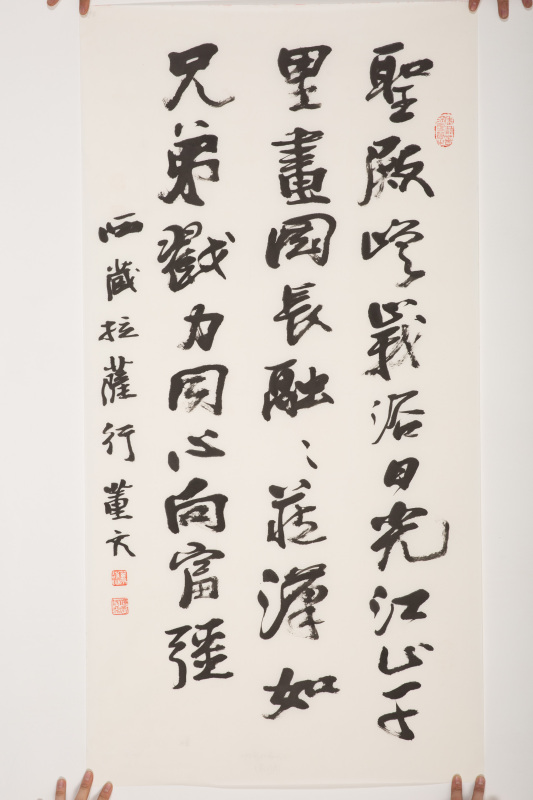 聖殿嵯峨浴日光江山千
里畫圖長融〻藏漢如
兄弟戮力同心向富彊
西藏拉薩行 董文